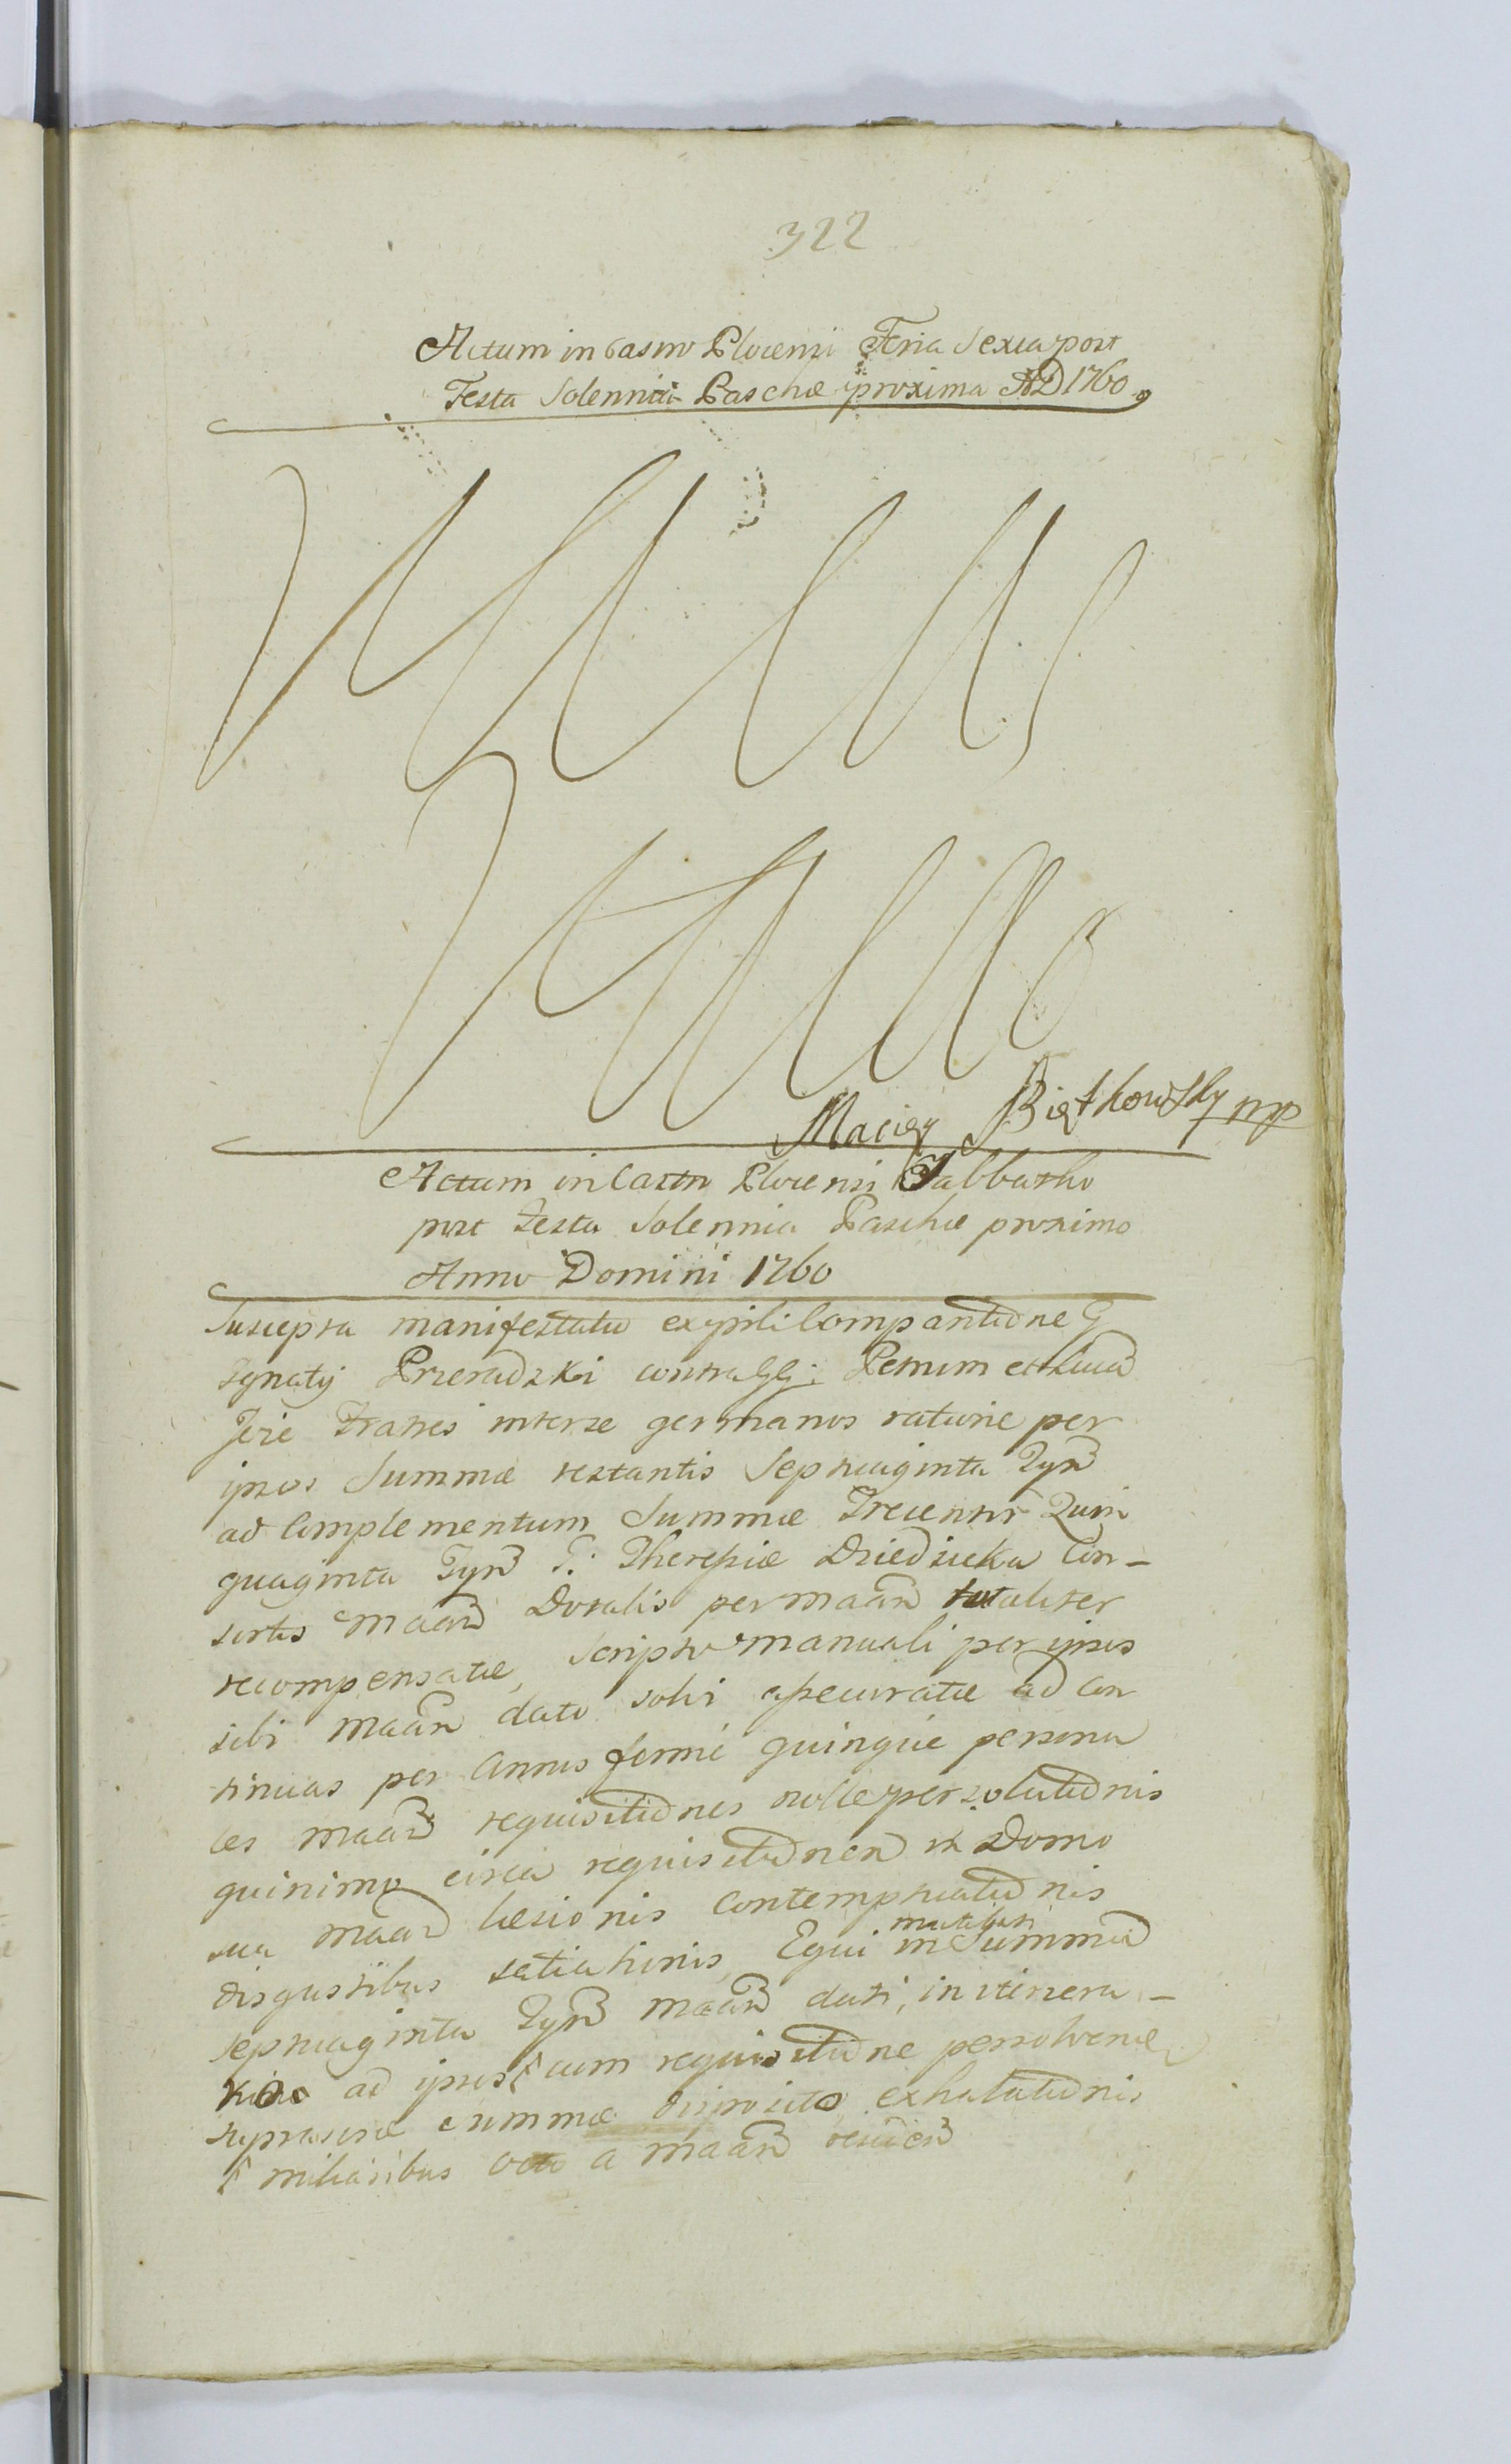 322
Actum in Castro Plocensi Feria Sexta post
Festa Solennia Paschæ proxima AD 1760
Maciey Biętkowsky mp
Actum in Castro Plocensi Sabbatho
post Festa Solennia Paschæ proximo
Anno Domini 1760
Suscepta manifestatio ex G
Ignatij Przeradzki contra GG: Petrum et
Fratres inter se germanos ratione per
ipsos Summæ restantis Septuaginta Tynf
ad Complementum Summæ Trecentor Quin
quaginta Tynf G: Theresiæ Con-
sortis Maan Dotalis per Maan totaliter
recompensatæ, Scripto manuali per ipsos
sibi Maan dato solvi assecuratæ ad Con
tinuas per Annos ferme quinque persona
les Maan requisitiones non persolutionis
quinimo circa requisitionem in Domo
sua Maan læsionis Contemptuationis
disgustibus satiationis, Equi in Summa
Septuaginta Tynf Maan dati, in itinera-
ad ipsos cum requisitione persolvendæ
summæ disposito exhalationis
miliaribus octo a Maan